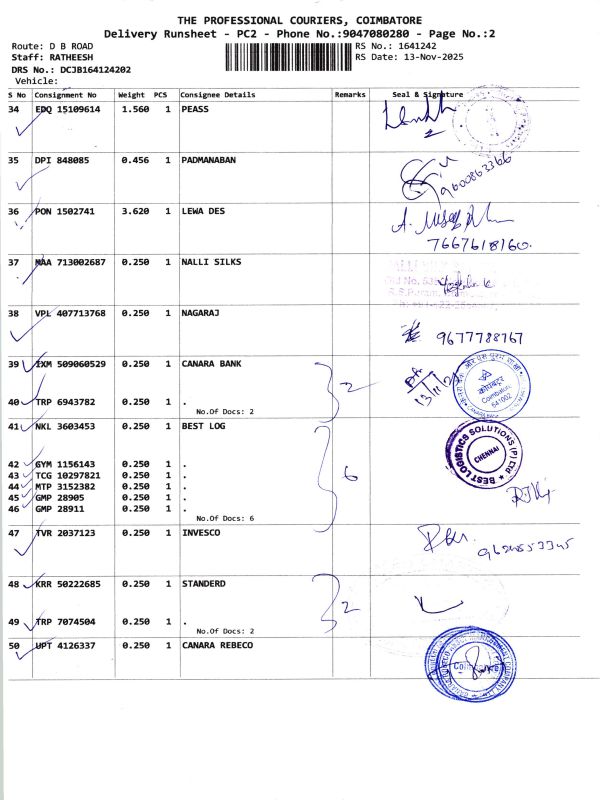 THE PROFESSIONAL COURIERS, COIMBATORE
Delivery Runsheet - PC2 - Phone No.:9047080280 - Page No.:2
Route: D B ROAD RS No.: 1641242
Staff: RATHEESH RS Date: 13-Nov-2025
DRS No.: DCJB164124202
Vehicle:
S No Consignment No Weight PCS Consignee Details Remarks Seal & Signature
34 EDQ 15109614 1.560 1 PEASS
35 DPI 848085 0.456 1 PADMANABAN
9600863366
36 PON 1502741 3.620 1 LEWA DES
7667618160.
37 MAA 713002687 0.250 1 NALLI SILKS
38 VPL 407713768 0.250 1 NAGARAJ
9677788767
39 IXM 509060529 0.250 1 CANARA BANK
Coimbatore
641002
2
40 TRP 6943782 0.250 1 .
No.Of Docs: 2
41 NKL 3603453 0.250 1 BEST LOG
BEST LOGISTICS SOLUTIONS (P) Ltd
CHENNAI
42 GYM 1156143 0.250 1 .
43 TCG 10297821 0.250 1 .
6
44 MTP 3152382 0.250 1 .
45 GMP 28905 0.250 1 .
46 GMP 28911 0.250 1 .
No.Of Docs: 6
47 TVR 2037123 0.250 1 INVESCO
48 KRR 50222685 0.250 1 STANDERD
2
49 TRP 7074504 0.250 1 .
No.Of Docs: 2
50 UPT 4126337 0.250 1 CANARA REBECO